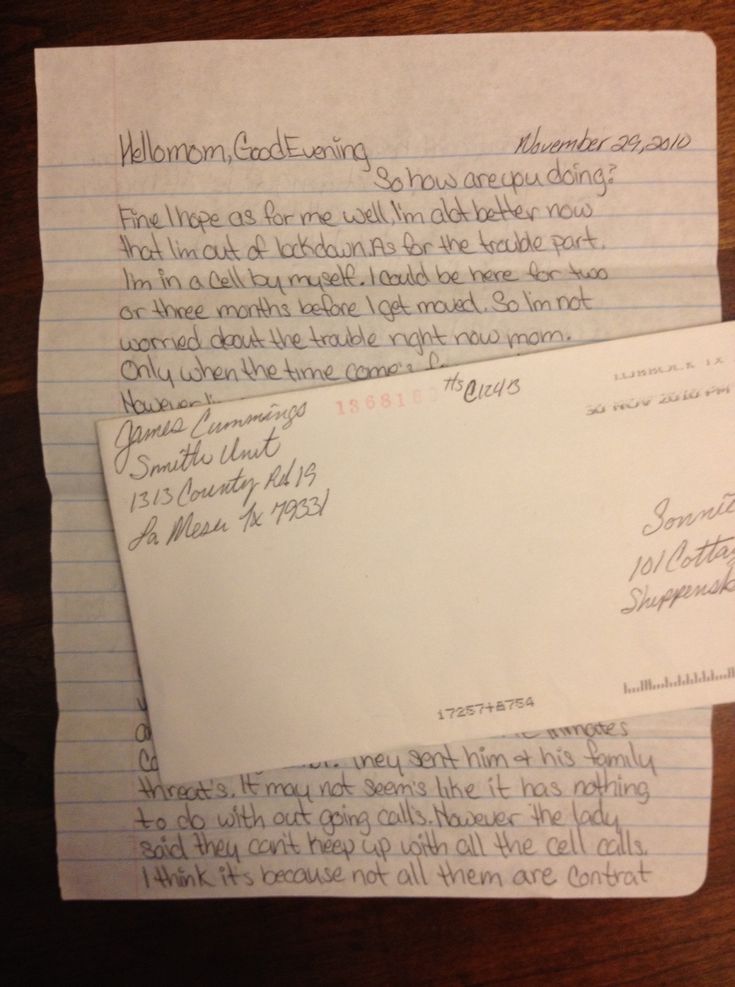 Hello mom, Good Evening
November 29, 2010
So how are you doing?
Fine I hope as for me well, I'm alot better now
that I'm out of lockdown. As for the trouble part.
I'm in a cell by myself. I could be here for two
or three months before I get moved. So I'm not
worried about the trouble right now mom.
Only when the time come's
However
James Cummings
Smith Unit
1313 County Rd 19
La Mesa Tx 79331
H5
C124B
LUBBOCK TX
30 NOV 2010 PM
Sonnie
101 Cotta
Shippensb
17257+8754
inmates
They sent him & his family
threat's. It may not seem's like it has nothing
to do with out going calls. However the lady
said they can't keep up with all the cell calls.
I think its because not all them are contrat